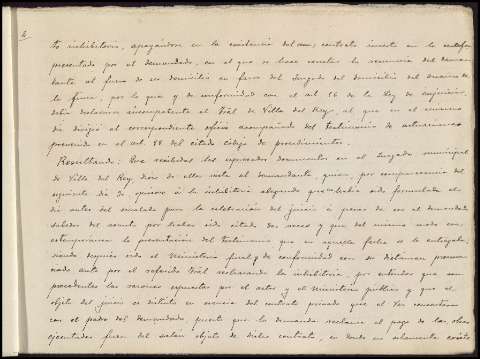 to inhibitorio, apoyándose en la existencia del contrato inserto en la
presentada por el demandado, en el que se hace constar la renuncia del deman-
dante al fuero de su domicilio en favor del Juzgado del domicilio del dueño de
la finca, por lo que y de conformidad con el art 56 de la Ley de enjuiciar,
debía declararse incompetente el Tral de Villa del Rey, al que en el mismo
día dirigió el correspondiente oficio acompañado del testimonio de actuaciones
prevenido en el art. 88 del citado código de procedimientos.
Resultando: Que recibidos los expresados documentos en el Juzgado municipal
de Villa del Rey, dióse de ellos vista al demandante, quien, por comparecencia del
siguiente día se opuso á la inhibitoria alegando que había sido formulada el
día antes del señalado para la celebración del juicio á pesar de ser el demandado
sabedor del asunto por haber sido citado dos veces y que del mismo modo era
extemporánea la presentación del testimonio que en aquella fecha se le entregaba;
siendo después oído el Ministerio fiscal y de conformidad con su dictamen pronun-
ciado auto por el referido Tral rechazando la inhibitoria, por entender que son
procedentes las razones expuestas por el actor y el ministerio público y que el
objeto del juicio es distinto en esencia del contrato privado que el
con el padre del demandado, puesto que la demanda reclama el pago de las obras
ejecutadas fuera del salón objeto de dicho contrato, en donde no solamente existe